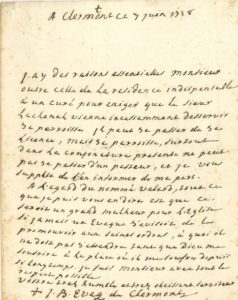 A Clermont ce 7 juin 1738
J'ay des raisons essentielles monsieur
outre celle de la residence indispensable
à un curé pour exiger que le sieur
vienne incessamment desservir
Sa parroisse il peut se passer de Sa
mais Sa parroisse, Surtout
dans la conjoncture presente ne peut
pas se passer d'un pasteur, et je vous
Supplie de l'en informer de ma part.
A l'egard du nommé tout ce
que je puis vous en dire est que ce
seroit un grand malheur pour l'eglise
Si jamais un Eveque s'avisoit de le
promouvoir aux saints ordres, à quoi il
ne doit pas s'attendre tant que dieu me
laissera à la place où il me souffre depuis
Si longtemps je suis Monsieur avec tout le
respect possible
Votre tres humble et tres obeissant serviteur
+ J. B. Eveq. de Clermont